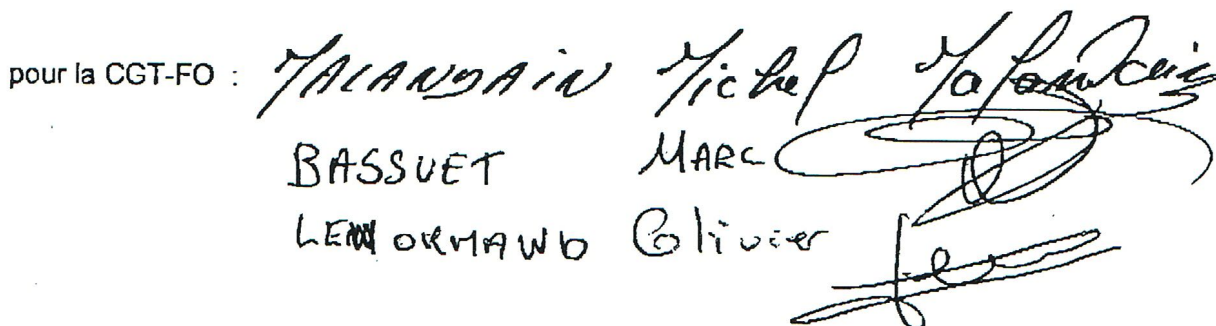 pour la CGT-FO : MALANDAIN Michel Malandain
BASSUET MARC
LENORMAND Olivier